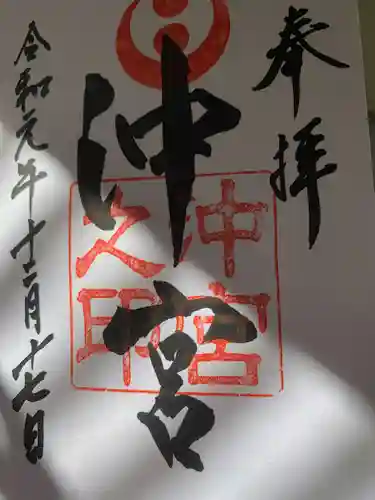 奉拝
沖宮
沖宮之印
令和元年十二月十七日